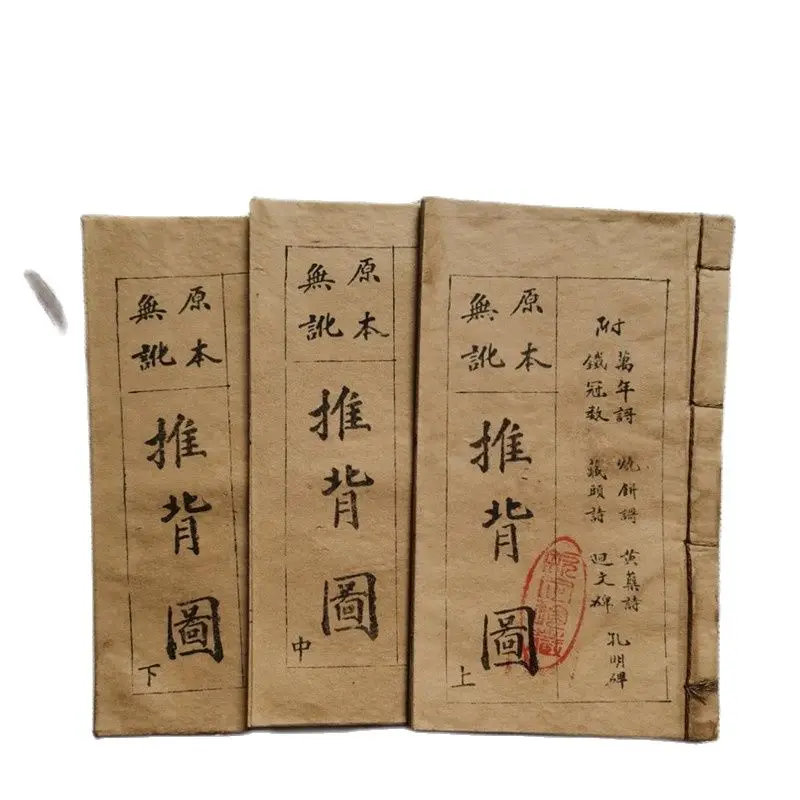 附
萬年謌 燒餅謌 黃蘗詩
鐵冠数 藏頭詩 迴文碑
孔明碑
原本
無訛
推背圖
上
原本
無訛
推背圖
中
原本
無訛
推背圖
下